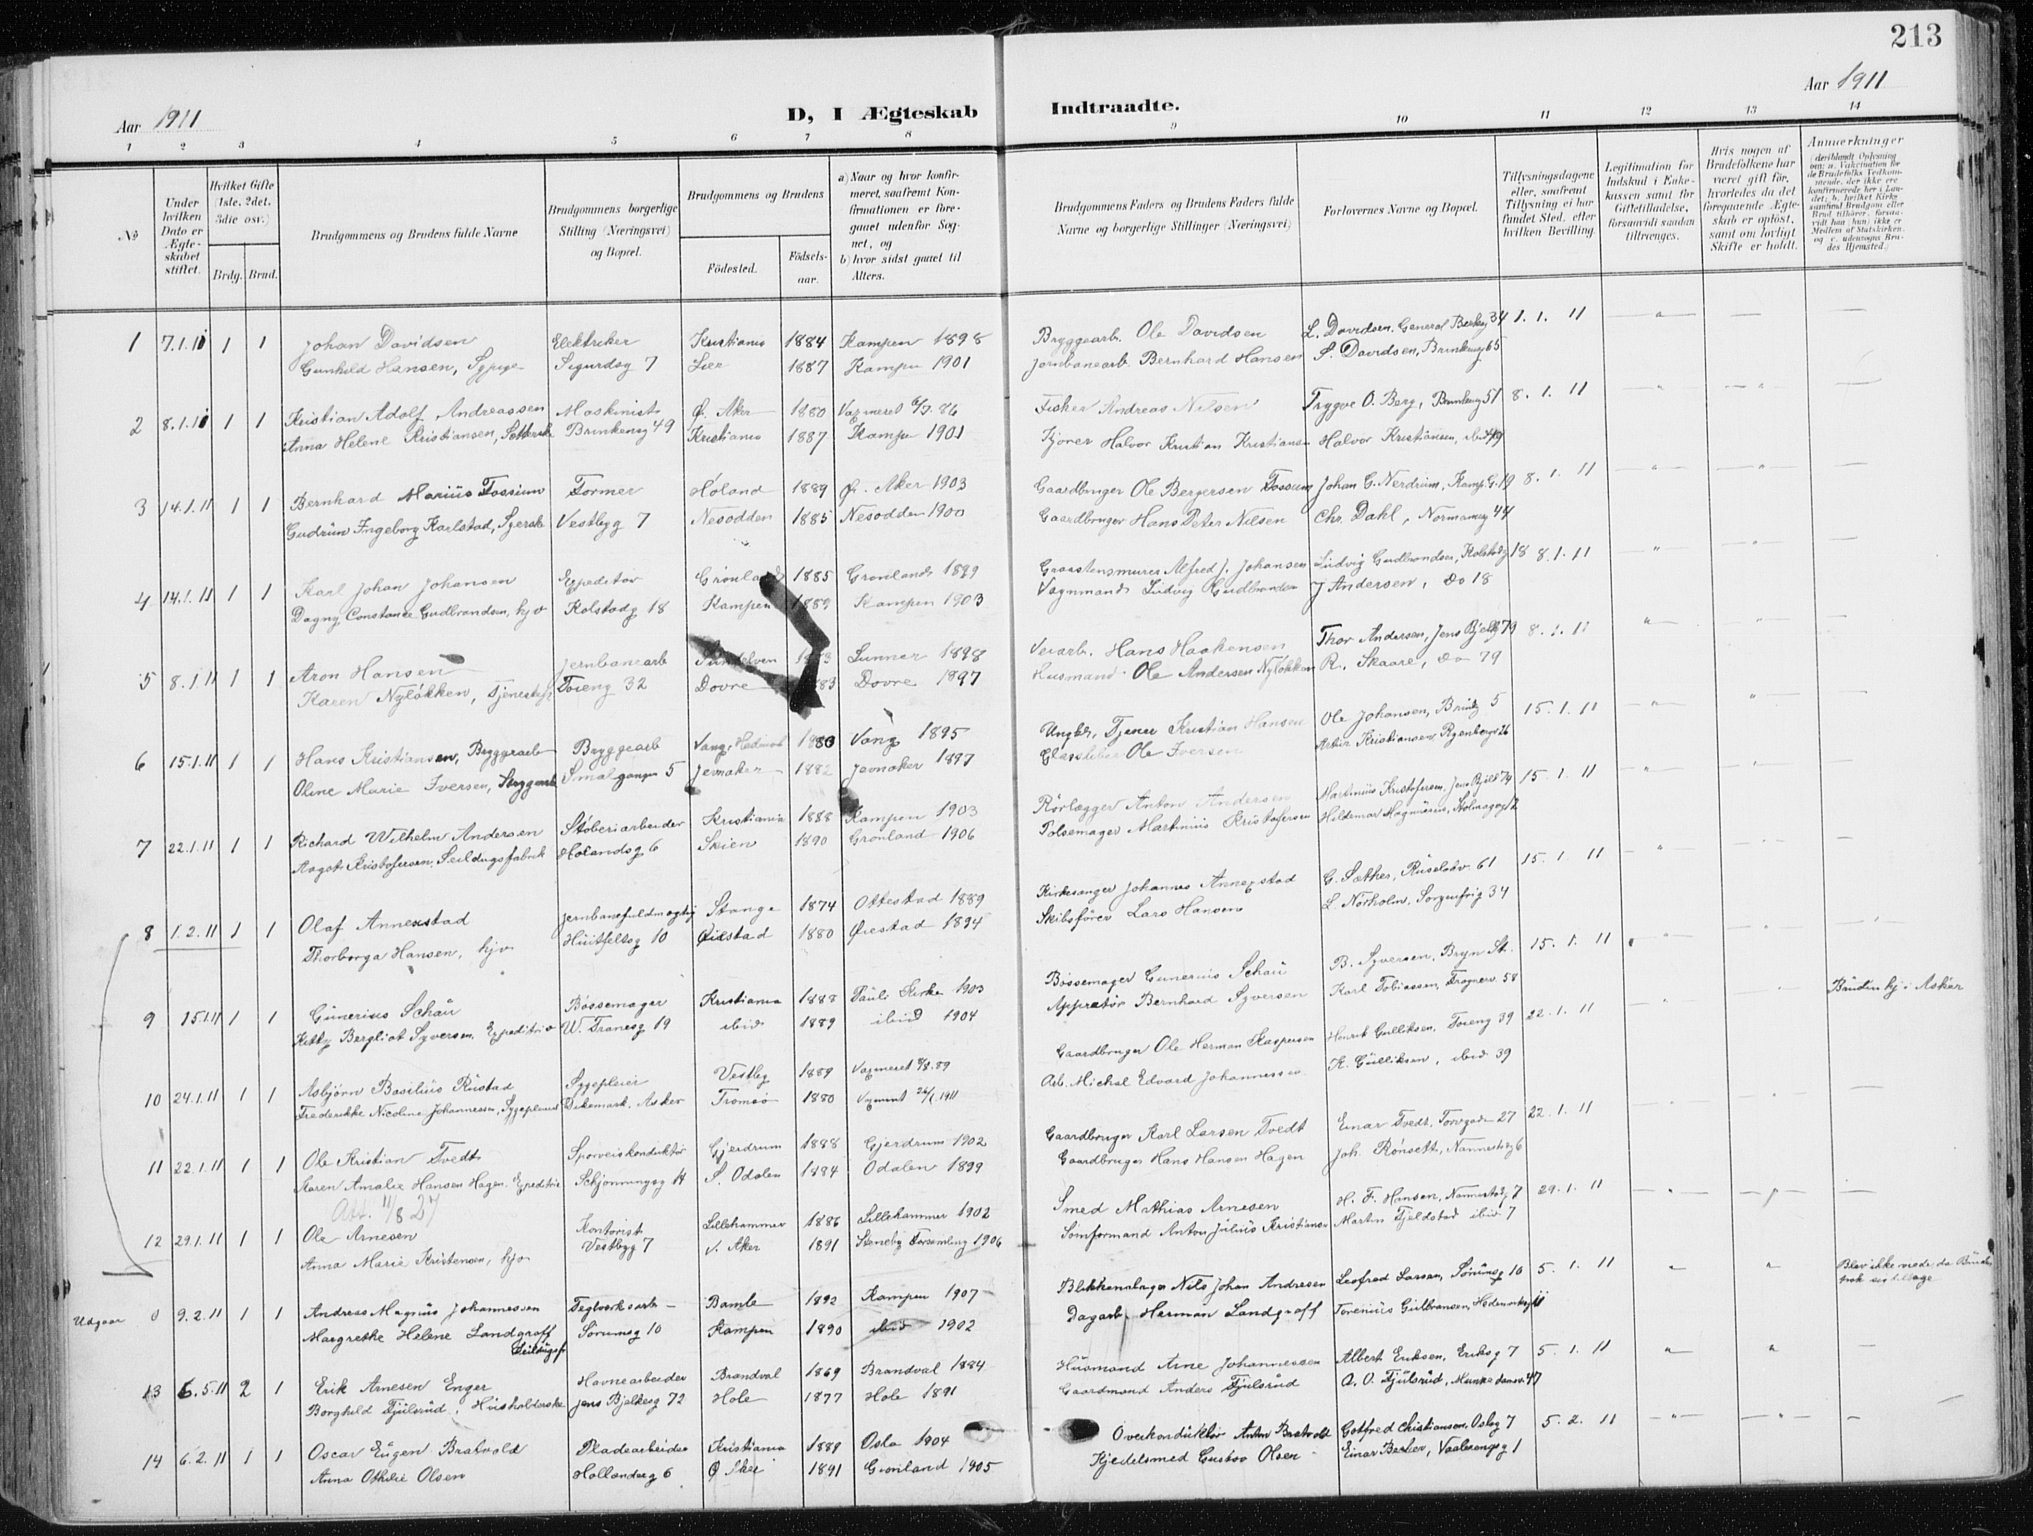 213
Aar 1911
D, I Ægteskab Indtraadte.
Aar 1911
1 2 3 4 5 6 7 8 9 10 11 12 13 14
No
Under hvilken Dato er Ægteskabet stiftet.
Hvilket Gifte (1ste, 2det, 3die osv.)
Brdg. Brud.
Brudgommens og Brudens fulde Navne
Brudgommens borgerlige Stilling (Næringsvei) og Bopæl.
Brudgommens og Brudens
Födested. Födselsaar.
a) Naar og hvor konfirmeret, saafremt Konfirmationen er foregaaet udenfor Sognet, og
b) hvor sidst gaaet til Alters.
Brudgommens Faders og Brudens Faders fulde Navne og borgerlige Stillinger (Næringsvei)
Forlovernes Navne og Bopæl.
Tillysningsdagene eller, saafremt Tillysning ei har fundet Sted, efter hvilken Bevilling.
Legitimation for Indskud i Enkekassen samt for Giftetilladelse, forsaavidt saadan tiltrænges.
Hvis nogen af Brudefolkene har været gift før, hvorledes da det foregaaende Ægteskab er opløst, samt om lovligt Skifte er holdt.
Anmerkninger
1 7.1.11 1 1 Johan Davidsen Elektriker Kristiania 1884 Kampen 1898 Bryggearb. Ole Davidsen L. Davidsen, General 34 1. 1. 11
Gunhild Hansen, Sypige Sigurdsg 7 Lier 1887 Kampen 1901 Jernbanearb. Bernhard Hansen S. Davidsen, 65
2 8.1.11 1 1 Kristian Adolf Andreassen Maskinist Ø. Aker 1880 Fisker Andreas Nilsen Trygve O. Berg, 51 8. 1. 11
Anna Helene Kristiansen, Brinkensg 49 Kristiania 1887 Kampen 1901 Kjører Halvor Kristian Kristiansen Halvor Kristiansen, ibid 49
3 14.1.11 1 1 Bernhard Marius Fossum Former Høland 1889 Ø. Aker 1903 Gaardbruger Ole Bergersen Fossum Johan G. Nerdrum, Kamp.G. 19 8. 1. 11
Gudrun Ingeborg Karlstad, Syerske Vestbyg 7 Nesodden 1885 Nesodden 1900 Gaardbruger Hans Peter Nilsen Chr. Dahl, Normannsg 44
4 14.1.11 1 1 Karl Johan Johansen Expeditør Grønland 1885 Grønlands 1899 Alfred J. Johansen Ludvig Gudbrandsen, Kolstadg 18 8. 1. 11
Dagny Constance Gudbrandsen, hjv Kolstadg 18 Kampen 1889 Kampen 1903 Vognmand Ludvig Gudbrandsen J Andersen, do 18
5 8.1.11 1 1 Aron Hansen Jernbanearb Lunner 1898 Veiarb. Hans Haakensen Thor Andersen, Jens Bjelkes 79 8. 1. 11
Karen Nyløkken, Tjenestepi Tøieng 32 Dovre Dovre 1897 Husmand Ole Andersen Nyløkken R. Skaare, do 79
6 15.1.11 1 1 Hans Kristiansen, Bryggearb Bryggearb Vang, Hedmark 1880 Vang 1895 Kristian Hansen Ole Johansen, 5 15. 1. 11
Oline Marie Iversen, Smalgangen 5 Jevnaker 1882 Jevnaker 1897 Ole Iversen Kristiansen, Ryenbergv 26
7 22.1.11 1 1 Richard Wilhelm Andersen Støberiarbeider Kristiania 1888 Kampen 1903 Rørlægger Anton Andersen Martinius Kristofersen, Jens Bjelk 79 15. 1. 11
Aagot Kristofersen, Seildugsfabrik Hølandsg 6 Skien 1890 Grønland 1906 Pølsemager Martinius Kristofersen Hildemar Magnusen,
8 1.2.11 1 1 Olaf Annexstad Jernbanefuldmægtig Stange 1874 Ottestad 1889 Kirkesanger Johannes Annexstad G. Sæther, 61 15. 1. 11
Thorborga Hansen, hjv. Huitfeltsg 10 Øiestad 1880 Øiestad 1894 Skibsfører Lars Hansen L. Nørholm, Sorgenfrig 34
9 15.1.11 1 1 Gunerius Schau Bøssemager Kristiania 1888 Pauls Kirke 1903 Bøssemager Gunerius Schau B. Syversen, Bryn St. 15. 1. 11
Kitty Bergliot Syversen, Expeditrice W. Tranesg 19 ibid 1889 ibid 1904 Appretør Bernhard Syversen Karl Tobiassen, Frognerv 58
10 24.1.11 1 1 Asbjørn Basilius Rustad Sygepleier Vestby 1889 Gaardbruger Ole Herman Kaspersen Henrik Gulliksen, Tøieng 39 22. 1. 11 Bruden hj. i Asker
Frederikke Nicoline Johannessen, Sygepleierske Dikemark, Asker Tromsø 1880 Arb. Michal Edvard Johannessen K. Gulliksen, ibid 39
11 22.1.11 1 1 Ole Kristian Tvedt Sporveiskonduktør Gjerdrum 1888 Gjerdrum 1902 Gaardbruger Karl Larsen Tvedt Einar Tvedt, Torvgade 27 22. 1. 11
Karen Amalie Hansen Hagen, Expeditrice Schjønningsg 14 S. Odalen 1884 Odalen 1899 Gaardbruger Hans Hansen Hagen Joh. Rønsett, Nannestadg 6
Att. 11/8 27
12 29.1.11 1 1 Ole Arnesen Kontorist Lillehammer 1886 Lillehammer 1902 Smed Mathias Arnesen H. F. Hansen, Nannestadg 7 29. 1. 11
Anna Marie Kristensen, hjv Vestbyg 7 V. Aker 1891 Forsamling 1906 Anton Julius Kristiansen Martin Fjeldstad ibid 7
Udgaar 0 9.2.11 1 1 Andreas Magnus Johannessen Teglverksarb Bamle 1892 Kampen 1907 Nils Johan Andresen Leofred Larsen, Sørumsg 10 5. 1. 11 Blev ikke viede da Bruden trak sig tilbage
Margrethe Helene Landgraff Sørumsg 10 Kampen 1890 ibid 1902 Dagarb. Herman Landgraff Torenius Gulbransen, Hedemarksg 11
Seildugsf
13 6.5.11 2 1 Erik Arnesen Enger Havnearbeider Brandval 1869 Brandval 1884 Husmand Arne Johannessen Albert Eriksen, Eriksg 7 5. 1. 11
Borghild Fjulsrud, Husholderske Jens Bjelkesg 72 Hole 1877 Hole 1891 Gaardmand Anders Fjulsrud A. O. Fjulsrud, Munkedamsv. 47
14 6.2.11 1 1 Oscar Eugen Bratvold Pladearbeider Kristiania 1889 Oslo 1904 Overkonduktør Anton Bratvold Gotfred Christiansen, Oslog 7 5. 2. 11
Anna Othilie Olsen Hollenderg 6 Ø Aker 1891 Grønland 1905 Kjedelsmed Gustav Olsen Einar Berker, Vaalerengsg 1